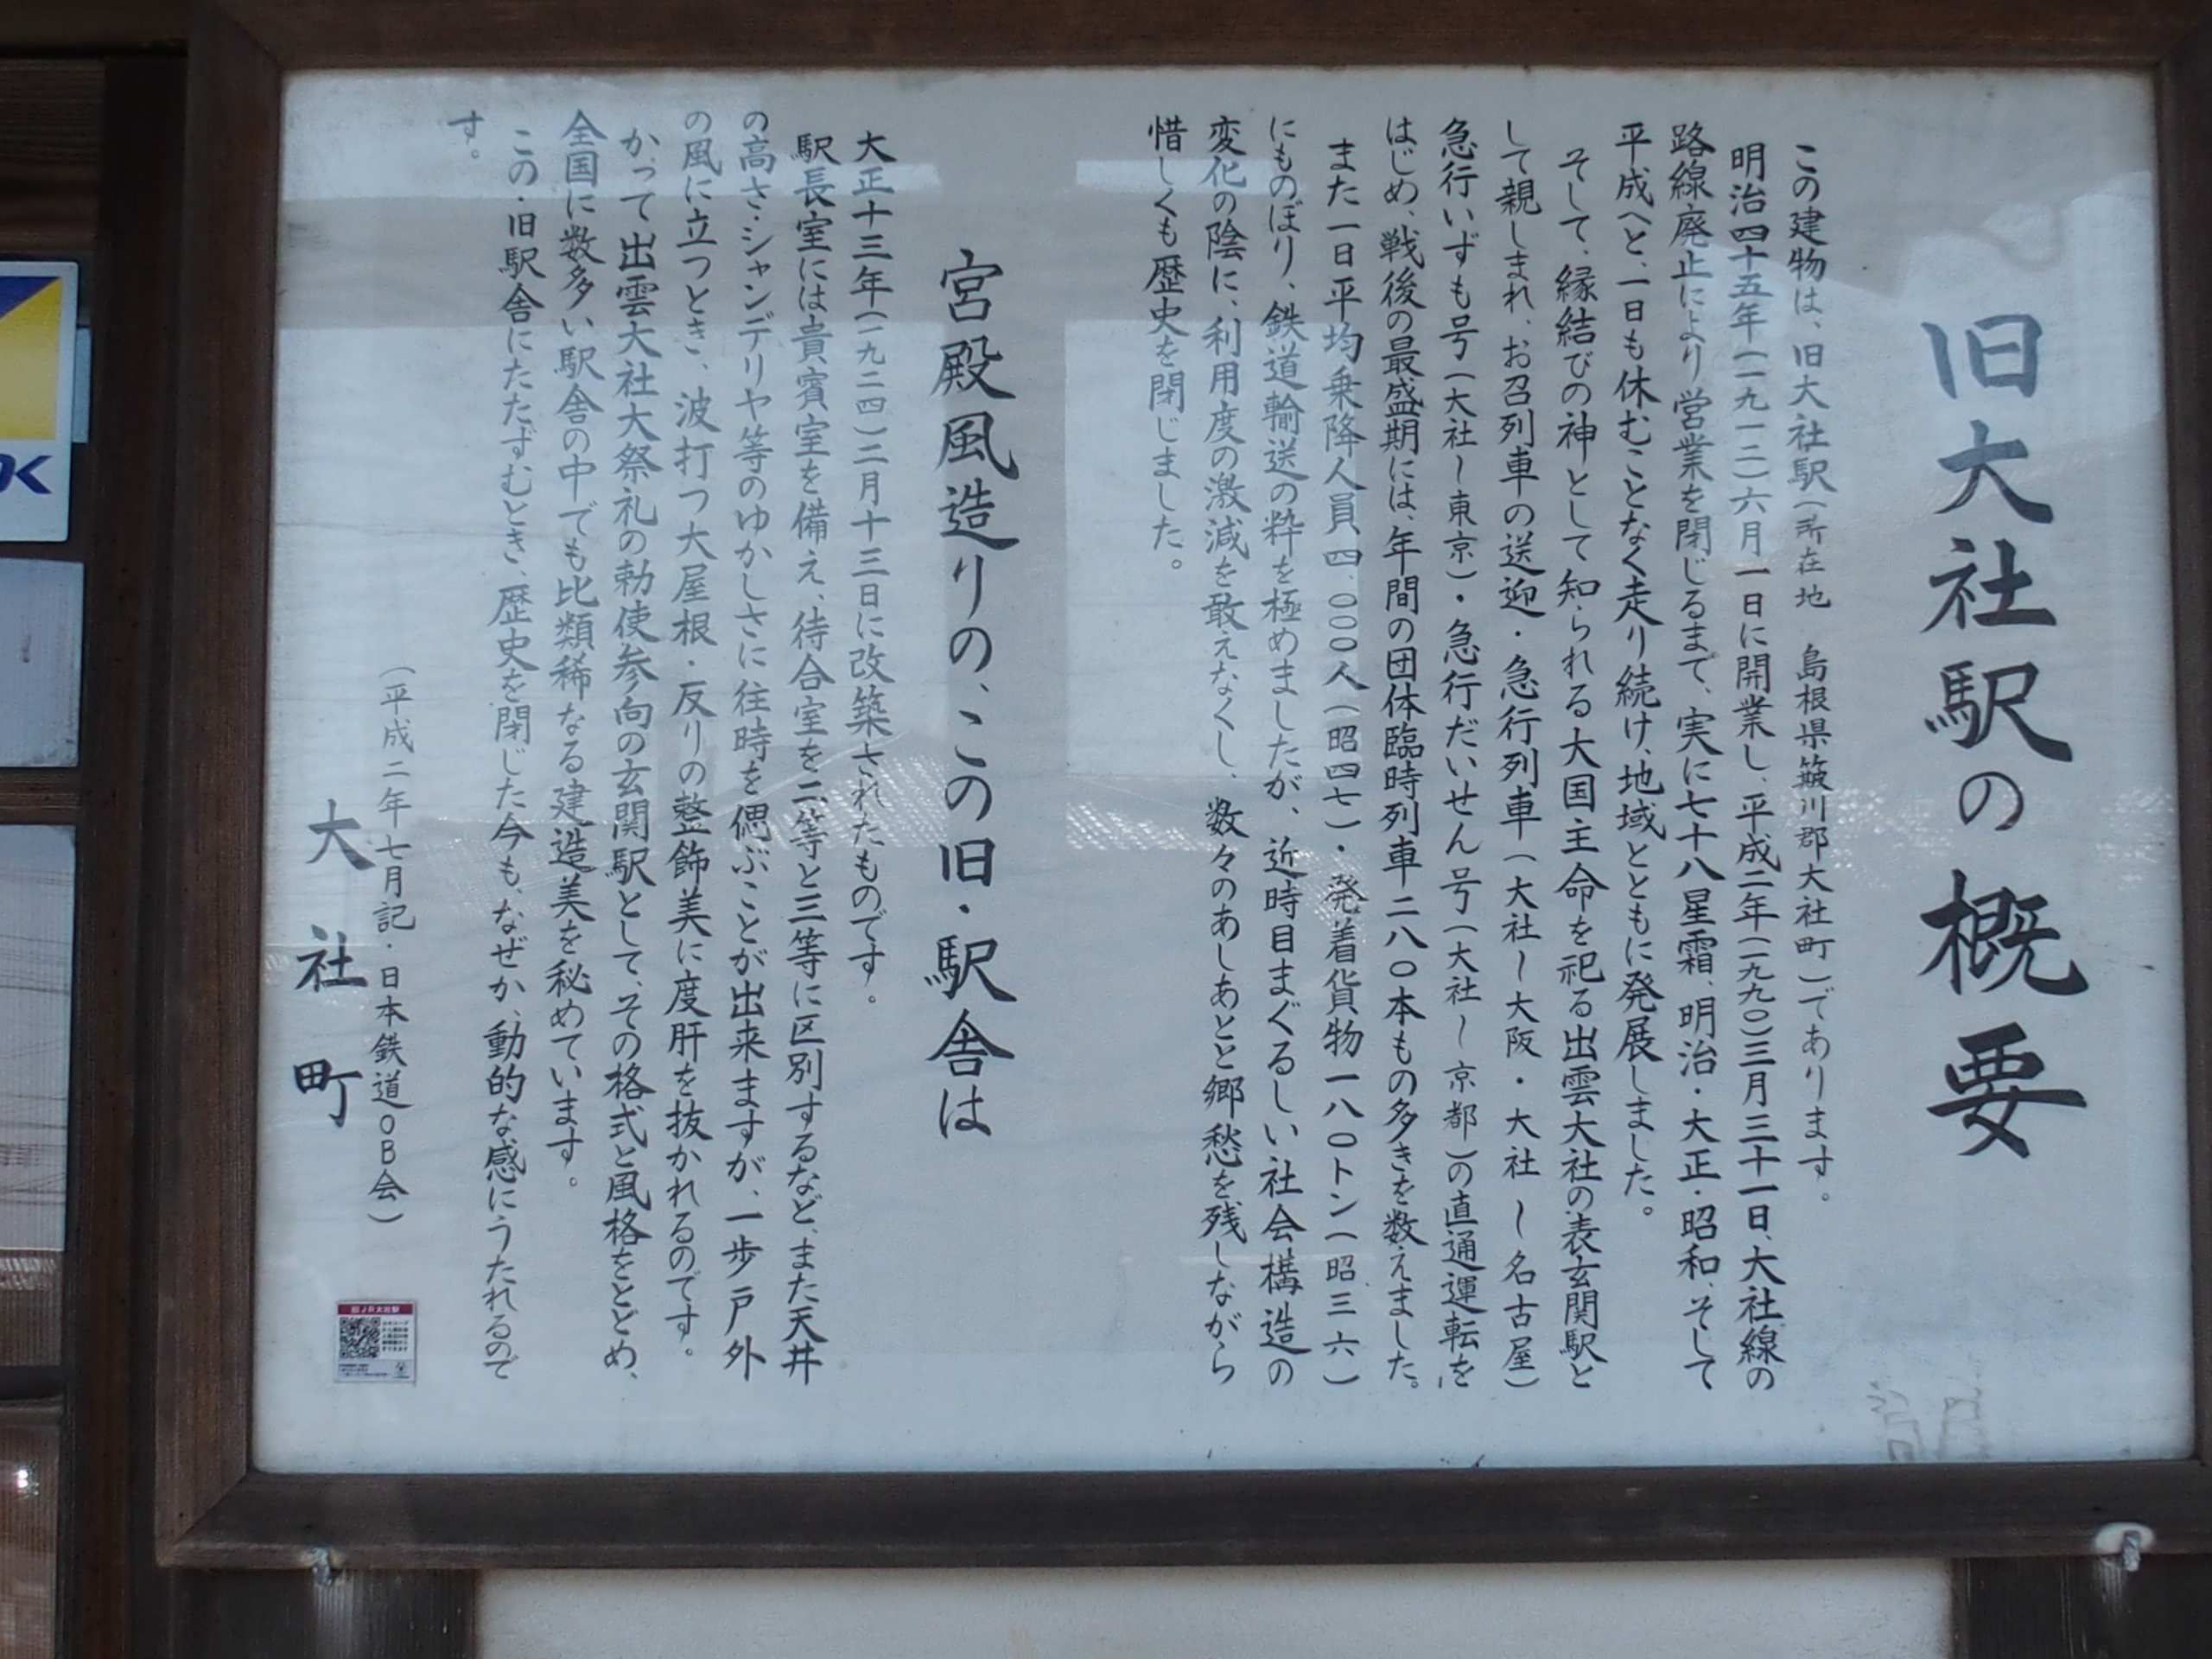 旧大社駅の概要
この建物は、旧大社駅(所在地 島根県簸川郡大社町)であります。
明治四十五年(一九一二)六月一日に開業し、平成二年(一九九〇)三月三十一日、大社線の
路線廃止により営業を閉じるまで、実に七十八星霜、明治・大正・昭和、そして
平成へと、一日も休むことなく走り続け、地域とともに発展しました。
そして、縁結びの神として知られる大国主命を祀る出雲大社の表玄関駅と
して親しまれ、お召列車の送迎・急行列車(大社〜大阪・大社〜名古屋)
急行いずも号(大社〜東京)・急行だいせん号(大社〜京都)の直通運転を
はじめ、戦後の最盛期には、年間の団体臨時列車二八〇本もの多きを数えました。
また一日平均乗降人員四、〇〇〇人(昭四七)・発着貨物一八〇トン(昭三六)
にものぼり、鉄道輸送の粋を極めましたが、近時目まぐるしい社会構造の
変化の陰に、利用度の激減を敢えなくし、数々のあしあとと郷愁を残しながら
惜しくも歴史を閉じました。
宮殿風造りの、この旧・駅舎は
大正十三年(一九二四)二月十三日に改築されたものです。
駅長室には貴賓室を備え、待合室を二等と三等に区別するなど、また天井
の高さ・シャンデリヤ等のゆかしさに往時を偲ぶことが出来ますが、一歩戸外
の風に立つとき、波打つ大屋根・反りの整飾美に度肝を抜かれるのです。
かって出雲大社大祭礼の勅使参向の玄関駅として、その格式と風格をとどめ、
全国に数多い駅舎の中でも比類稀なる建造美を秘めています。
この・旧駅舎にたたずむとき、歴史を閉じた今も、なぜか、動的な感にうたれるので
す。
(平成二年七月記・日本鉄道OB会)
大社町
旧JR大社駅